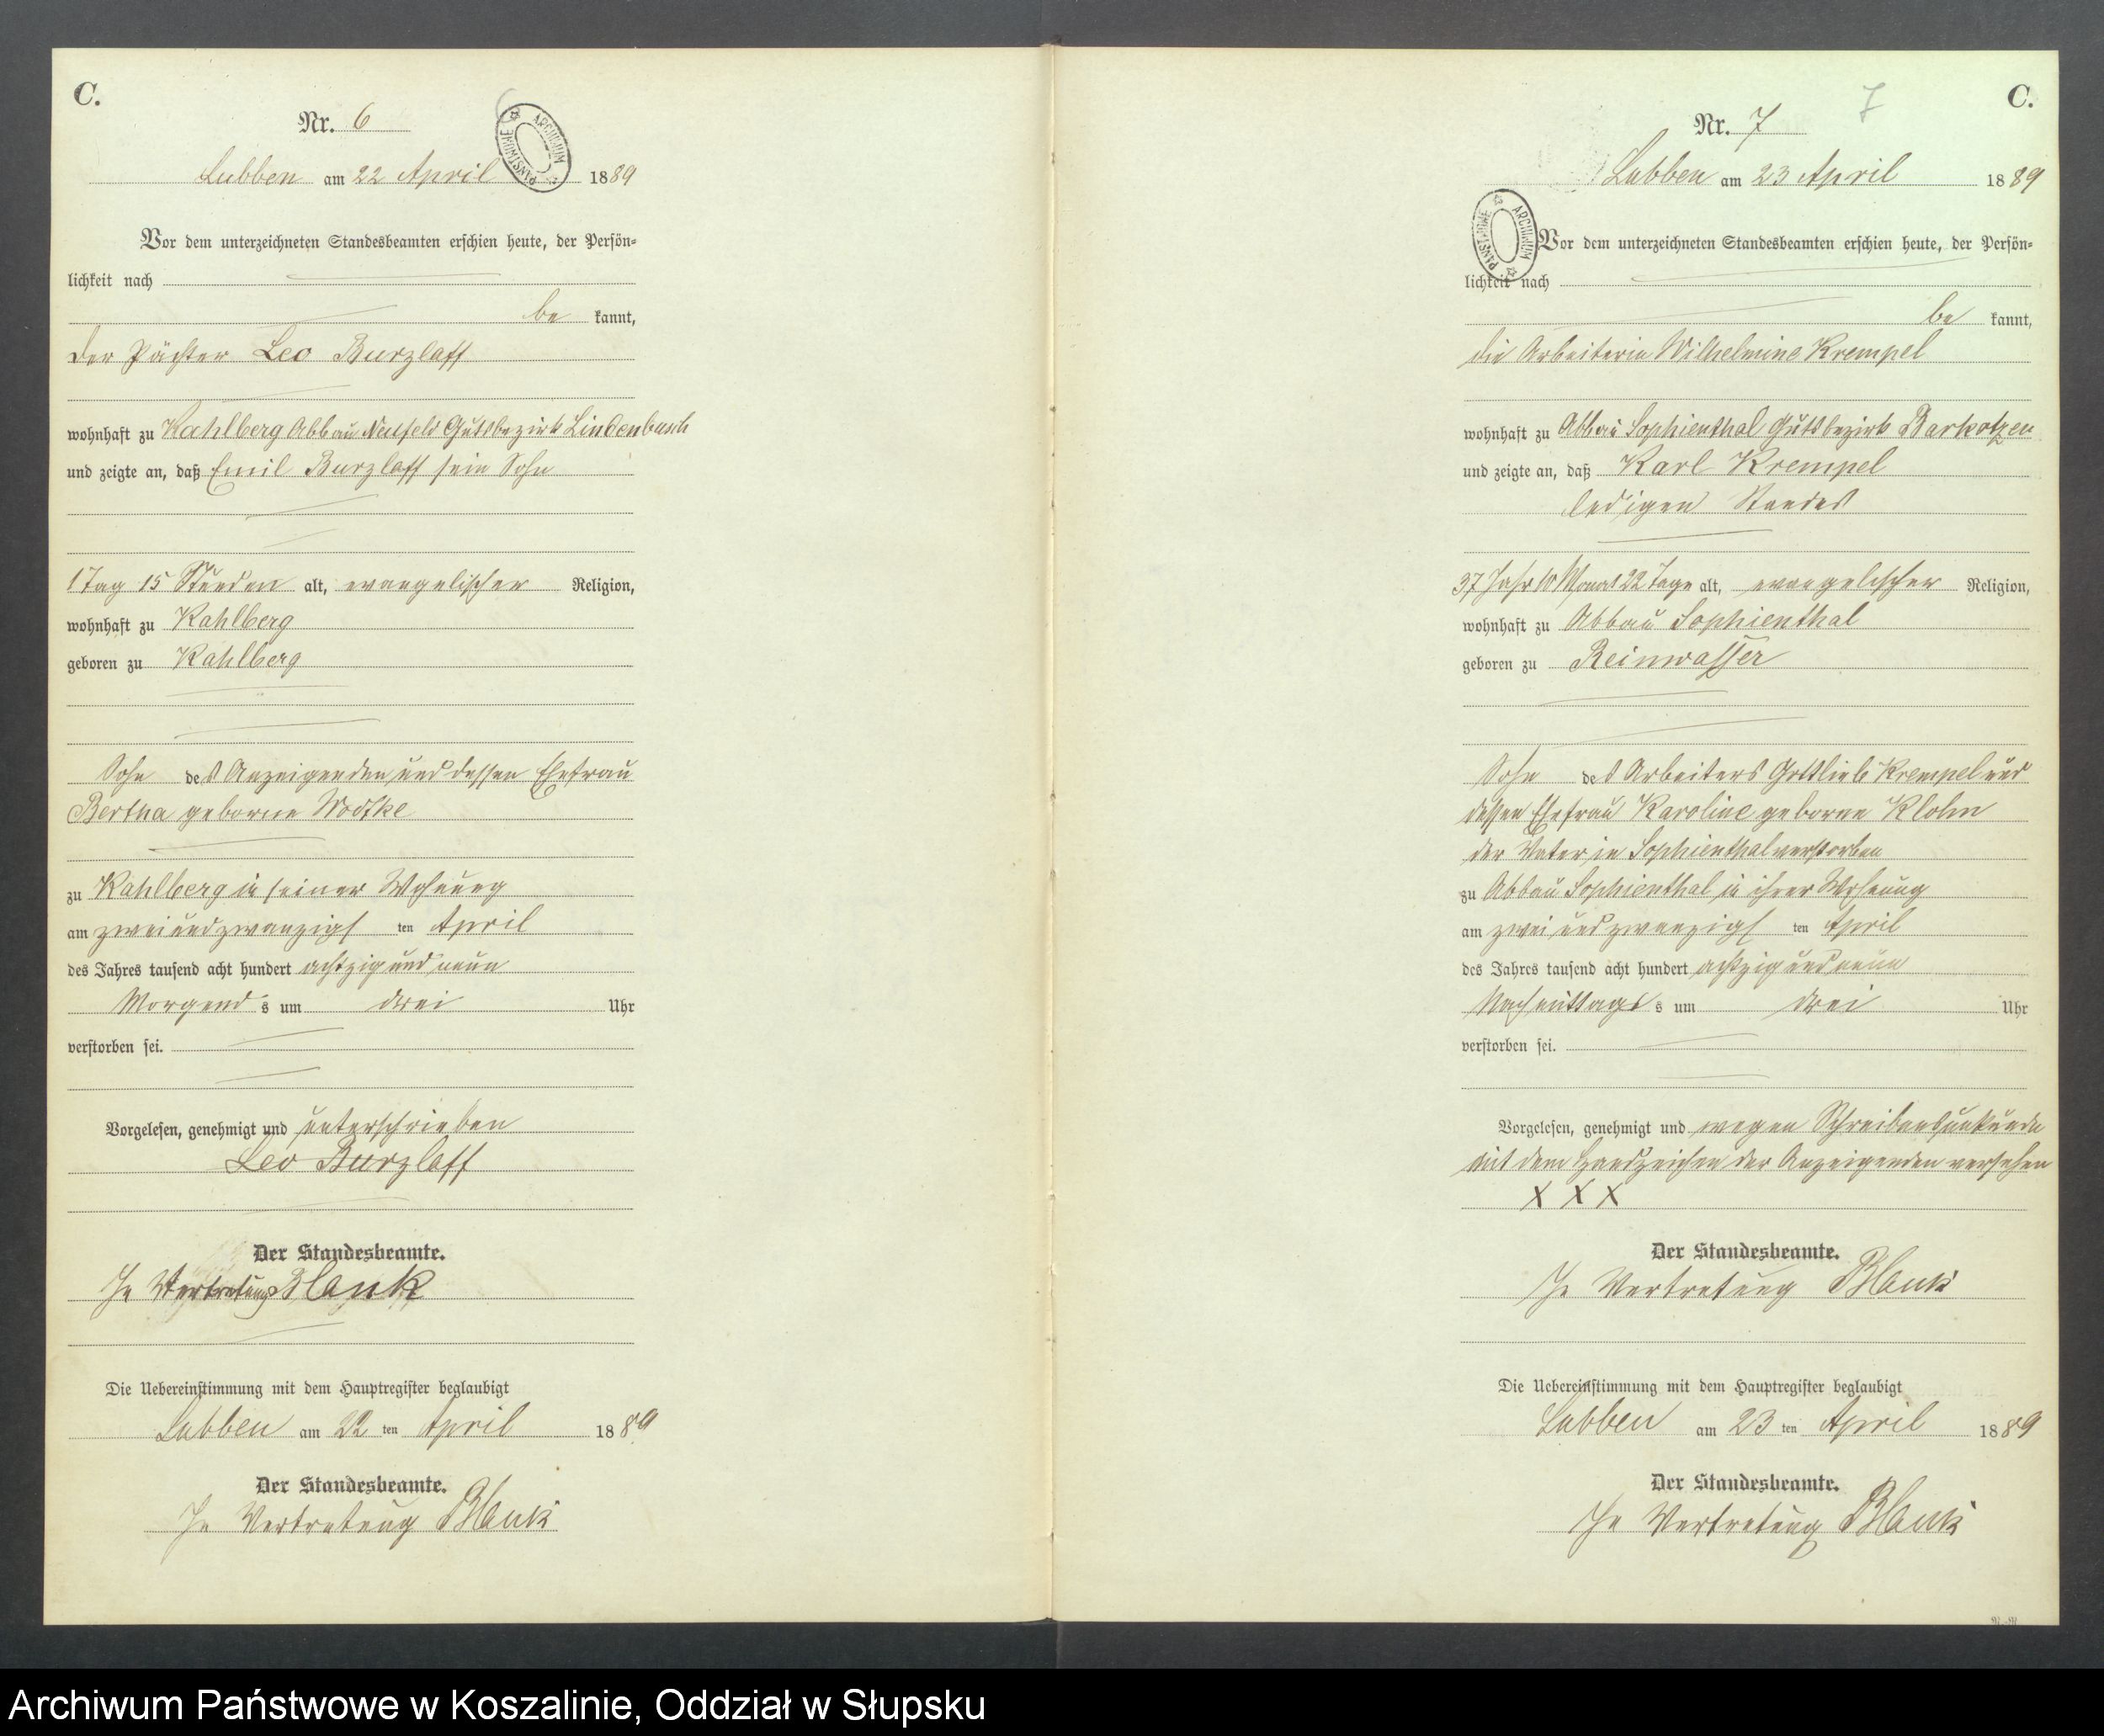 C.
Nr. 6
Lubben am 22 April 1889
ARCHIWUM PAŃSTWOWE
Vor dem unterzeichneten Standesbeamten erschien heute, der Persön=
lichkeit nach
be kannt,
der Pächter Leo Burzlaff
wohnhaft zu Kahlberg Abbau Neufeld Gutsbezirk Lindenbusch
und zeigte an, daß Emil Burzlaff sein Sohn
1 Tag 15 Stunden alt, evangelischer Religion,
wohnhaft zu Kahlberg
geboren zu Kahlberg
Sohn des Anzeigenden und dessen Ehefrau
Bertha geborne Wodtke
zu Kahlberg in seiner Wohnung
am zwei und zwanzigs ten April
des Jahres tausend acht hundert achtzig und neun
Morgend s um drei Uhr
verstorben sei.
Vorgelesen, genehmigt und unterschrieben
Leo Burzlaff
Der Standesbeamte.
In Vertretung Blank
Die Uebereinstimmung mit dem Hauptregister beglaubigt
Lubben am 22 ten April 1889
Der Standesbeamte.
In Vertretung Blank
7
C.
Nr. 7
Lubben am 23 April 1889
ARCHIWUM PAŃSTWOWE
Vor dem unterzeichneten Standesbeamten erschien heute, der Persön=
lichkeit nach
be kannt,
die Arbeiterin Wilhelmine Krempel
wohnhaft zu Abbau Sophienthal Gutsbezirk Barkotzen
und zeigte an, daß Karl Krempel
ledigen Standes
37 Jahr 10 Monat 22 Tage alt, evangelischer Religion,
wohnhaft zu Abbau Sophienthal
geboren zu Reinwasser
Sohn des Arbeiters Gottlieb Krempel und
dessen Ehefrau Karoline geborne Klohn
der Vater in Sophienthal verstorben
zu Abbau Sophienthal in ihrer Wohnung
am zwei und zwanzigs ten April
des Jahres tausend acht hundert achtzig und neun
Nachmittags s um drei Uhr
verstorben sei.
Vorgelesen, genehmigt und wegen Schreibensunkunde
mit dem Handzeichen der Anzeigenden versehen
X X X
Der Standesbeamte.
In Vertretung Blank
Die Uebereinstimmung mit dem Hauptregister beglaubigt
Lubben am 23 ten April 1889
Der Standesbeamte.
In Vertretung Blank
Archiwum Państwowe w Koszalinie, Oddział w Słupsku